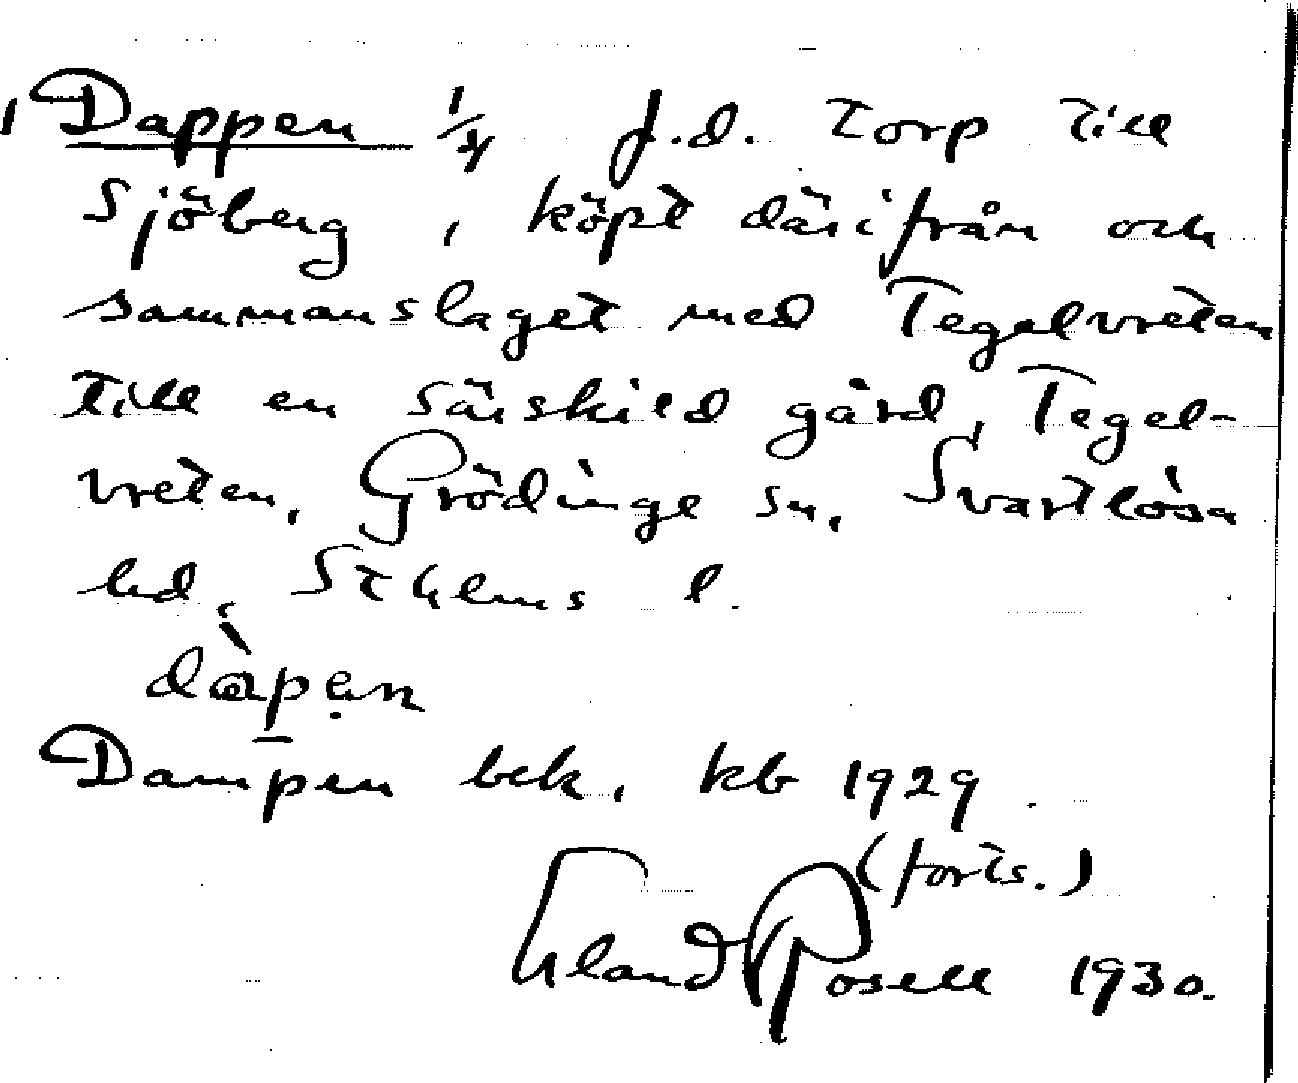 1 Dappen 1/4 f.d. torp till
Sjöberg, köpt därifrån och
sammanslaget med Tegelvreten
till en särskild gård, Tegel-
vreten, Grödinge sn, Svartlösa
hd, Sthlms l.
dàpęn
Dampen bek. kb 1929
(forts.)
Erland Rosell 1930.